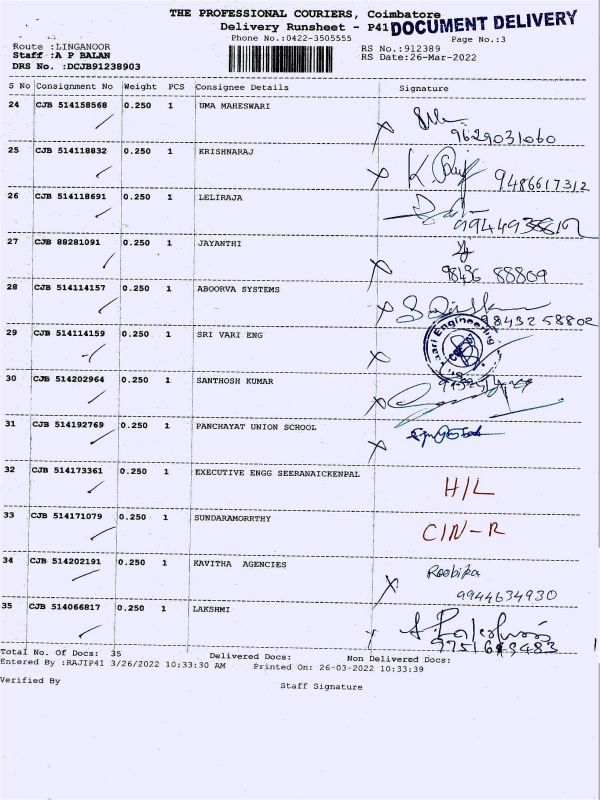 THE PROFESSIONAL COURIERS, Coimbatore
Delivery Runsheet - P41
DOCUMENT DELIVERY
Phone No.:0422-3505555
Page No.:3
Route :LINGANOOR
RS No.:912389
Staff :A P BALAN
RS Date:26-Mar-2022
DRS No. :DCJB91238903
S No Consignment No Weight PCS Consignee Details Signature
24 CJB 514158568 0.250 1 UMA MAHESWARI
9629031060
25 CJB 514118832 0.250 1 KRISHNARAJ
9486617312
26 CJB 514118691 0.250 1 LELIRAJA
27 CJB 88281091 0.250 1 JAYANTHI
88809
28 CJB 514114157 0.250 1 ABOORVA SYSTEMS
9843258802
29 CJB 514114159 0.250 1 SRI VARI ENG
Engineering
30 CJB 514202964 0.250 1 SANTHOSH KUMAR
31 CJB 514192769 0.250 1 PANCHAYAT UNION SCHOOL
32 CJB 514173361 0.250 1 EXECUTIVE ENGG SEERANAICKENPAL
H/L
33 CJB 514171079 0.250 1 SUNDARAMORRTHY
CIN-R
34 CJB 514202191 0.250 1 KAVITHA AGENCIES
9944634930
35 CJB 514066817 0.250 1 LAKSHMI
Total No. Of Docs: 35 Delivered Docs: Non Delivered Docs:
Entered By :RAJIP41 3/26/2022 10:33:30 AM Printed On: 26-03-2022 10:33:39
Verified By
Staff Signature